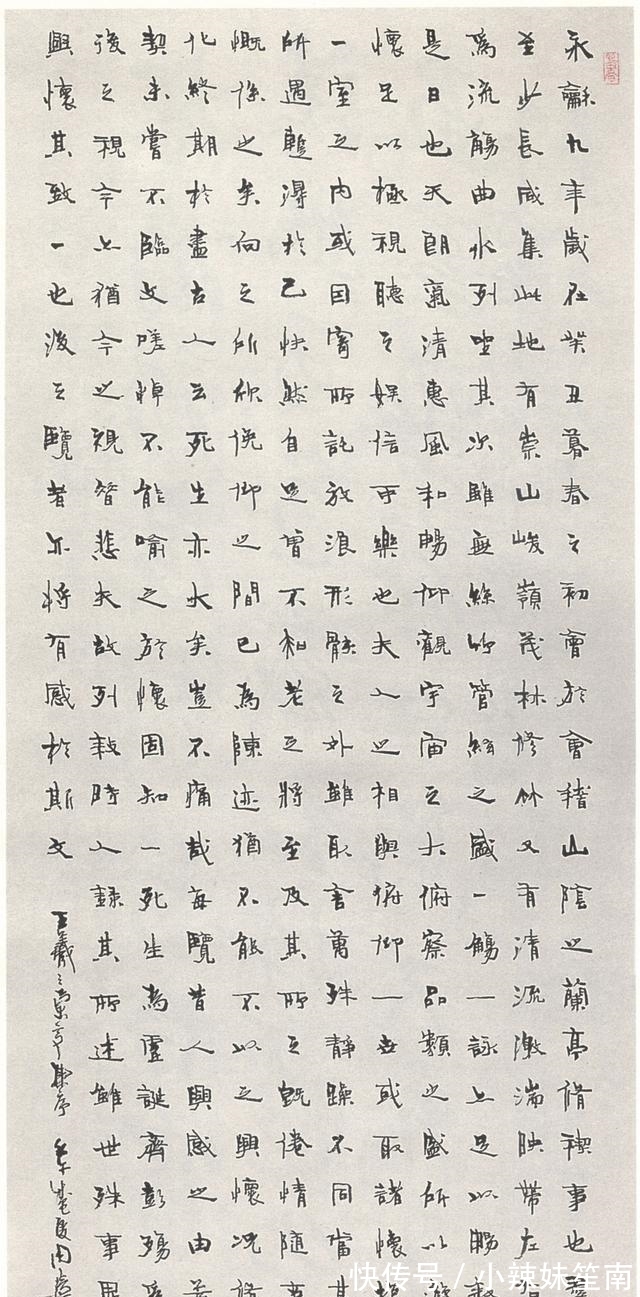 永龢九年歲在癸丑暮春之初會於會稽山陰之蘭亭脩禊事也
至少長咸集此地有崇山峻嶺茂林修竹又有清流激湍映帶左
為流觴曲水列坐其次雖無絲竹管絃之盛一觴一詠亦足以暢敘
是日也天朗氣清惠風和暢仰觀宇宙之大俯察品類之盛所以
懷足以極視聽之娛信可樂也夫人之相與俯仰一世或取諸懷
一室之內或因寄所託放浪形骸之外雖取舍萬殊靜躁不同當其
所遇暫得於己快然自足曾不知老之將至及其所之既倦情隨事
慨係之矣向之所欣俛仰之間已為陳迹猶不能不以之興懷況脩
化終期於盡古人云死生亦大矣豈不痛哉每覽昔人興感之由若
契未嘗不臨文嗟悼不能喻之於懷固知一死生為虛誕齊彭殤為
後之視今亦猶今之視昔悲夫故列敘時人錄其所述雖世殊事異
興懷其致一也後之覽者亦將有感於斯文
王羲之蘭亭集序
快传号 / 小辣妹笙南